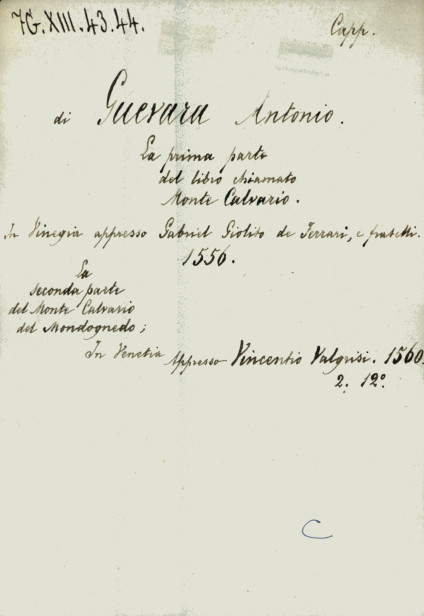 7G.XIII.43.44.
Capp.
di Guevara Antonio.
La prima parte
del libro chiamato
Monte Calvario.
In Vinegia appresso Gabriel Giolito de Ferrari, e fratelli.
1556.
La
seconda parte
del Monte Calvario
del Mondognedo;
In Venetia Appresso Vincentio Valgrisi. 1560.
2. 12º
C